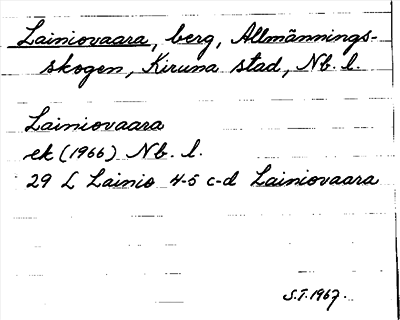 Lainiovaara, berg, Allmännings-
skogen, Kiruna stad, Nb. l.
Lainiovaara
ek (1966) Nb. l.
29 L Lainio 4-5 c-d Lainiovaara
S.T. 1967.